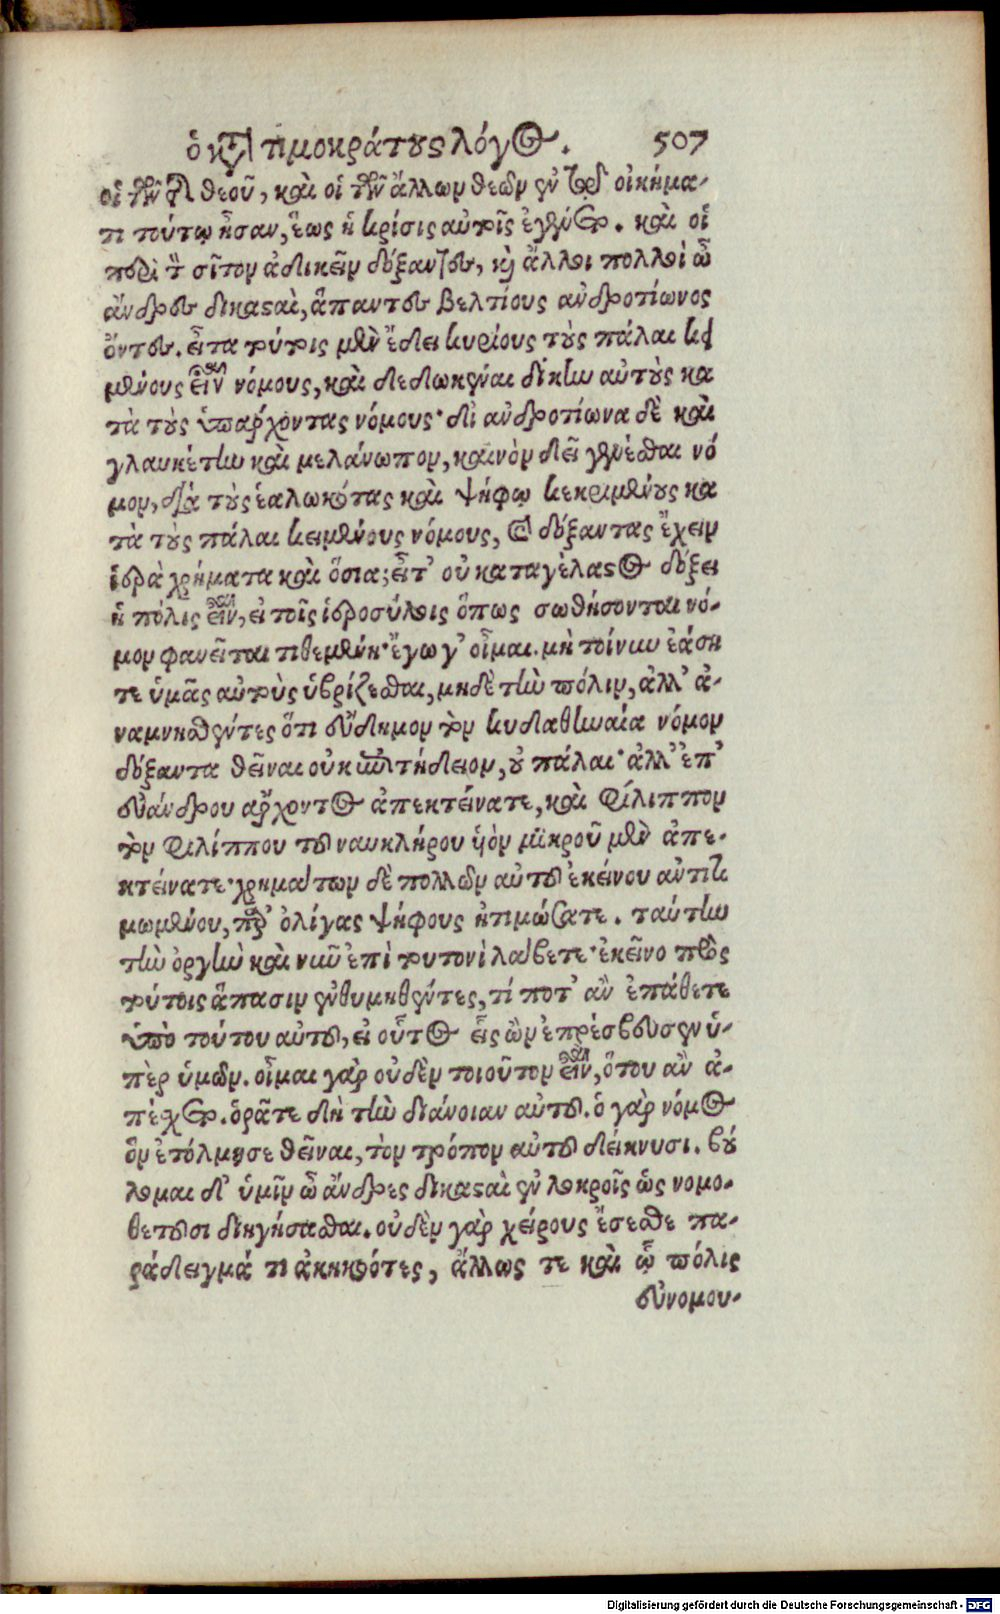 ὁ κατὰ τιμοκράτους λόγος. 507
οἱ τῶν τῆς θεοῦ, καὶ οἱ τῶν ἄλλων θεῶν ἐν τῷ οἰκήμα-
τι τούτῳ ἦσαν, ἕως ἡ κρίσις αὐτοῖς ἐγένετο. καὶ οἱ
περὶ τὸν σῖτον ἀδικεῖν δόξαντες, καὶ ἄλλοι πολλοὶ ὦ
ἄνδρες δικασταὶ, ἅπαντες βελτίους ἀνδροτίωνος
ὄντες. εἶτα τούτοις μὲν ἔδει κυρίους τοὺς πάλαι κει
μένους εἶναι νόμους, καὶ δεδωκέναι δίκην αὐτοὺς κα
τὰ τοὺς ὑπάρχοντας νόμους· δι' ἀνδροτίωνα δὲ καὶ
γλαυκέτην καὶ μελάνωπον, καινὸν δεῖ γενέσθαι νό
μον, διὰ τοὺς ἑαλωκότας καὶ ψήφῳ κεκριμένους κα
τὰ τοὺς πάλαι κειμένους νόμους, καὶ δόξαντας ἔχειν
ἱερὰ χρήματα καὶ ὅσια; εἶτ' οὐ καταγέλαστος δόξει
ἡ πόλις εἶναι, εἰ τοῖς ἱεροσύλοις ὅπως σωθήσονται νό-
μον φανεῖται τιθεμένη· ἔγωγ' οἶμαι. μὴ τοίνυν ἐάση
τε ὑμᾶς αὐτοὺς ὑβρίζεσθαι, μηδὲ τὴν πόλιν, ἀλλ' ἀ-
ναμνησθέντες ὅτι εὔδημον τὸν κυδαθηναιᾶ νόμον
δόξαντα θεῖναι οὐκ ἐπιτήδειον, οὐ πάλαι· ἀλλ' ἐπ'
εὐάνδρου ἄρχοντος ἀπεκτείνατε, καὶ φίλιππον
τὸν φιλίππου τοῦ ναυκλήρου ὑὸν μικροῦ μὲν ἀπε-
κτείνατε· χρημάτων δὲ πολλῶν αὐτοῦ ἐκείνου ἀντιτι
μωμένου, παρ' ὀλίγας ψήφους ἠτιμώσατε. ταύτην
τὴν ὀργὴν καὶ νῦν ἐπὶ τουτονὶ λάβετε· ἐκεῖνο πρὸς
τούτοις ἅπασιν ἐνθυμηθέντες, τί ποτ' ἂν ἐπάθετε
ὑπὸ τούτου αὐτοῦ, εἰ οὗτος εἷς ὢν ἐπρέσβευσεν ὑ-
πὲρ ὑμῶν. οἶμαι γὰρ οὐδὲν τοιοῦτον εἶναι, ὅτου ἂν ἀ-
πέσχετο. ὁρᾶτε δὴ τὴν διάνοιαν αὐτοῦ. ὁ γὰρ νόμος
ὃν ἐτόλμησε θεῖναι, τὸν τρόπον αὐτοῦ δείκνυσι. βού
λομαι δ' ὑμῖν ὦ ἄνδρες δικασταὶ ἐν λοκροῖς ὡς νομο-
θετοῦσι διηγήσασθαι. οὐδὲν γὰρ χείρους ἔσεσθε πα-
ράδειγμά τι ἀκηκοότες, ἄλλως τε καὶ ᾧ πόλις
εὐνομου-
Digitalisierung gefördert durch die Deutsche Forschungsgemeinschaft - DFG